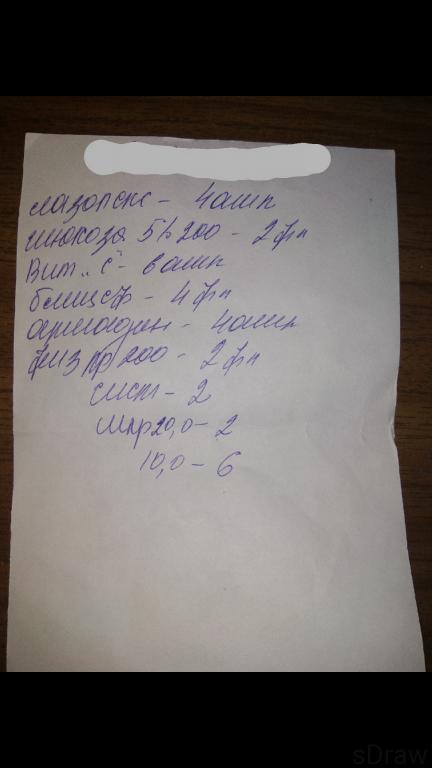 лазопекс - 4 амп
глюкоза 5% 200 - 2 фл
Вит „С" - 6 амп
блицеф - 4 фл
армадин - 4 амп
физ рр 200 - 2 фл
сист - 2
шпр 20,0 - 2
10,0 - 6
sDraw